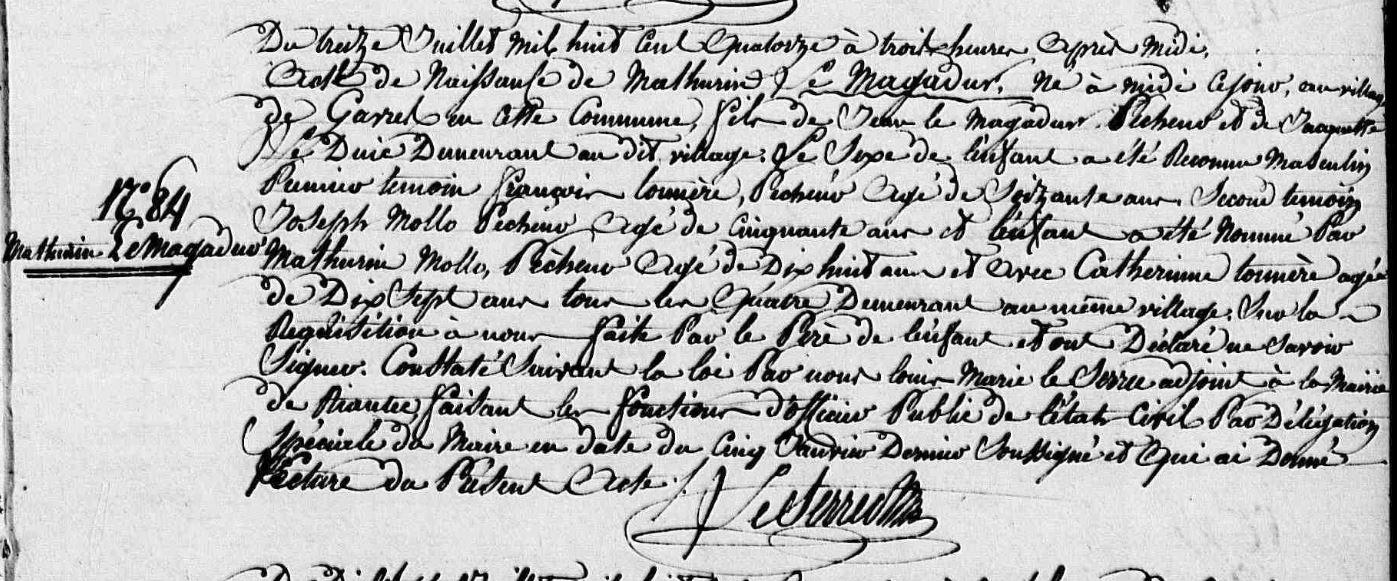 Du treize Juillet mil huit cent quatorze à trois heures après midi,
Acte de Naissance de Mathurin Le Magadur, né à midi ce jour, au village
de Gavres en cette Commune, fils de Jean le Magadur Pecheur et de Jacquette
Le Duic Demeurant au dit village; Le Sexe de l'enfant a été Reconnu Masculin
Premier temoin françois tonnère, Pecheur Agé de Soixante ans Second temoin
Joseph Mollo Pecheur Agé de Cinquante ans et l'enfant a été Nommé Par
Mathurin Mollo, Pêcheur Agé de Dix huit ans et avec Catherinne tonnère agée
de Dix Sept ans tous les Quatre Demeurant au même village. Sur la
Requisition à nous faite Par le Pere de l'enfant et ont Déclaré ne Savoir
Signer. Constaté Suivant la loi Par nous louis Marie le Serrec adjoint à la Mairie
de Riantec faisant les fonctions d'officier Public de l'état Civil Par Délégation
Spéciale du Maire en date du Cinq Janvier Dernier Soussigné et Qui ai Donné
Lecture du Présent Acte.
N° 84
Mathurin Le Magadur
Le Serrec